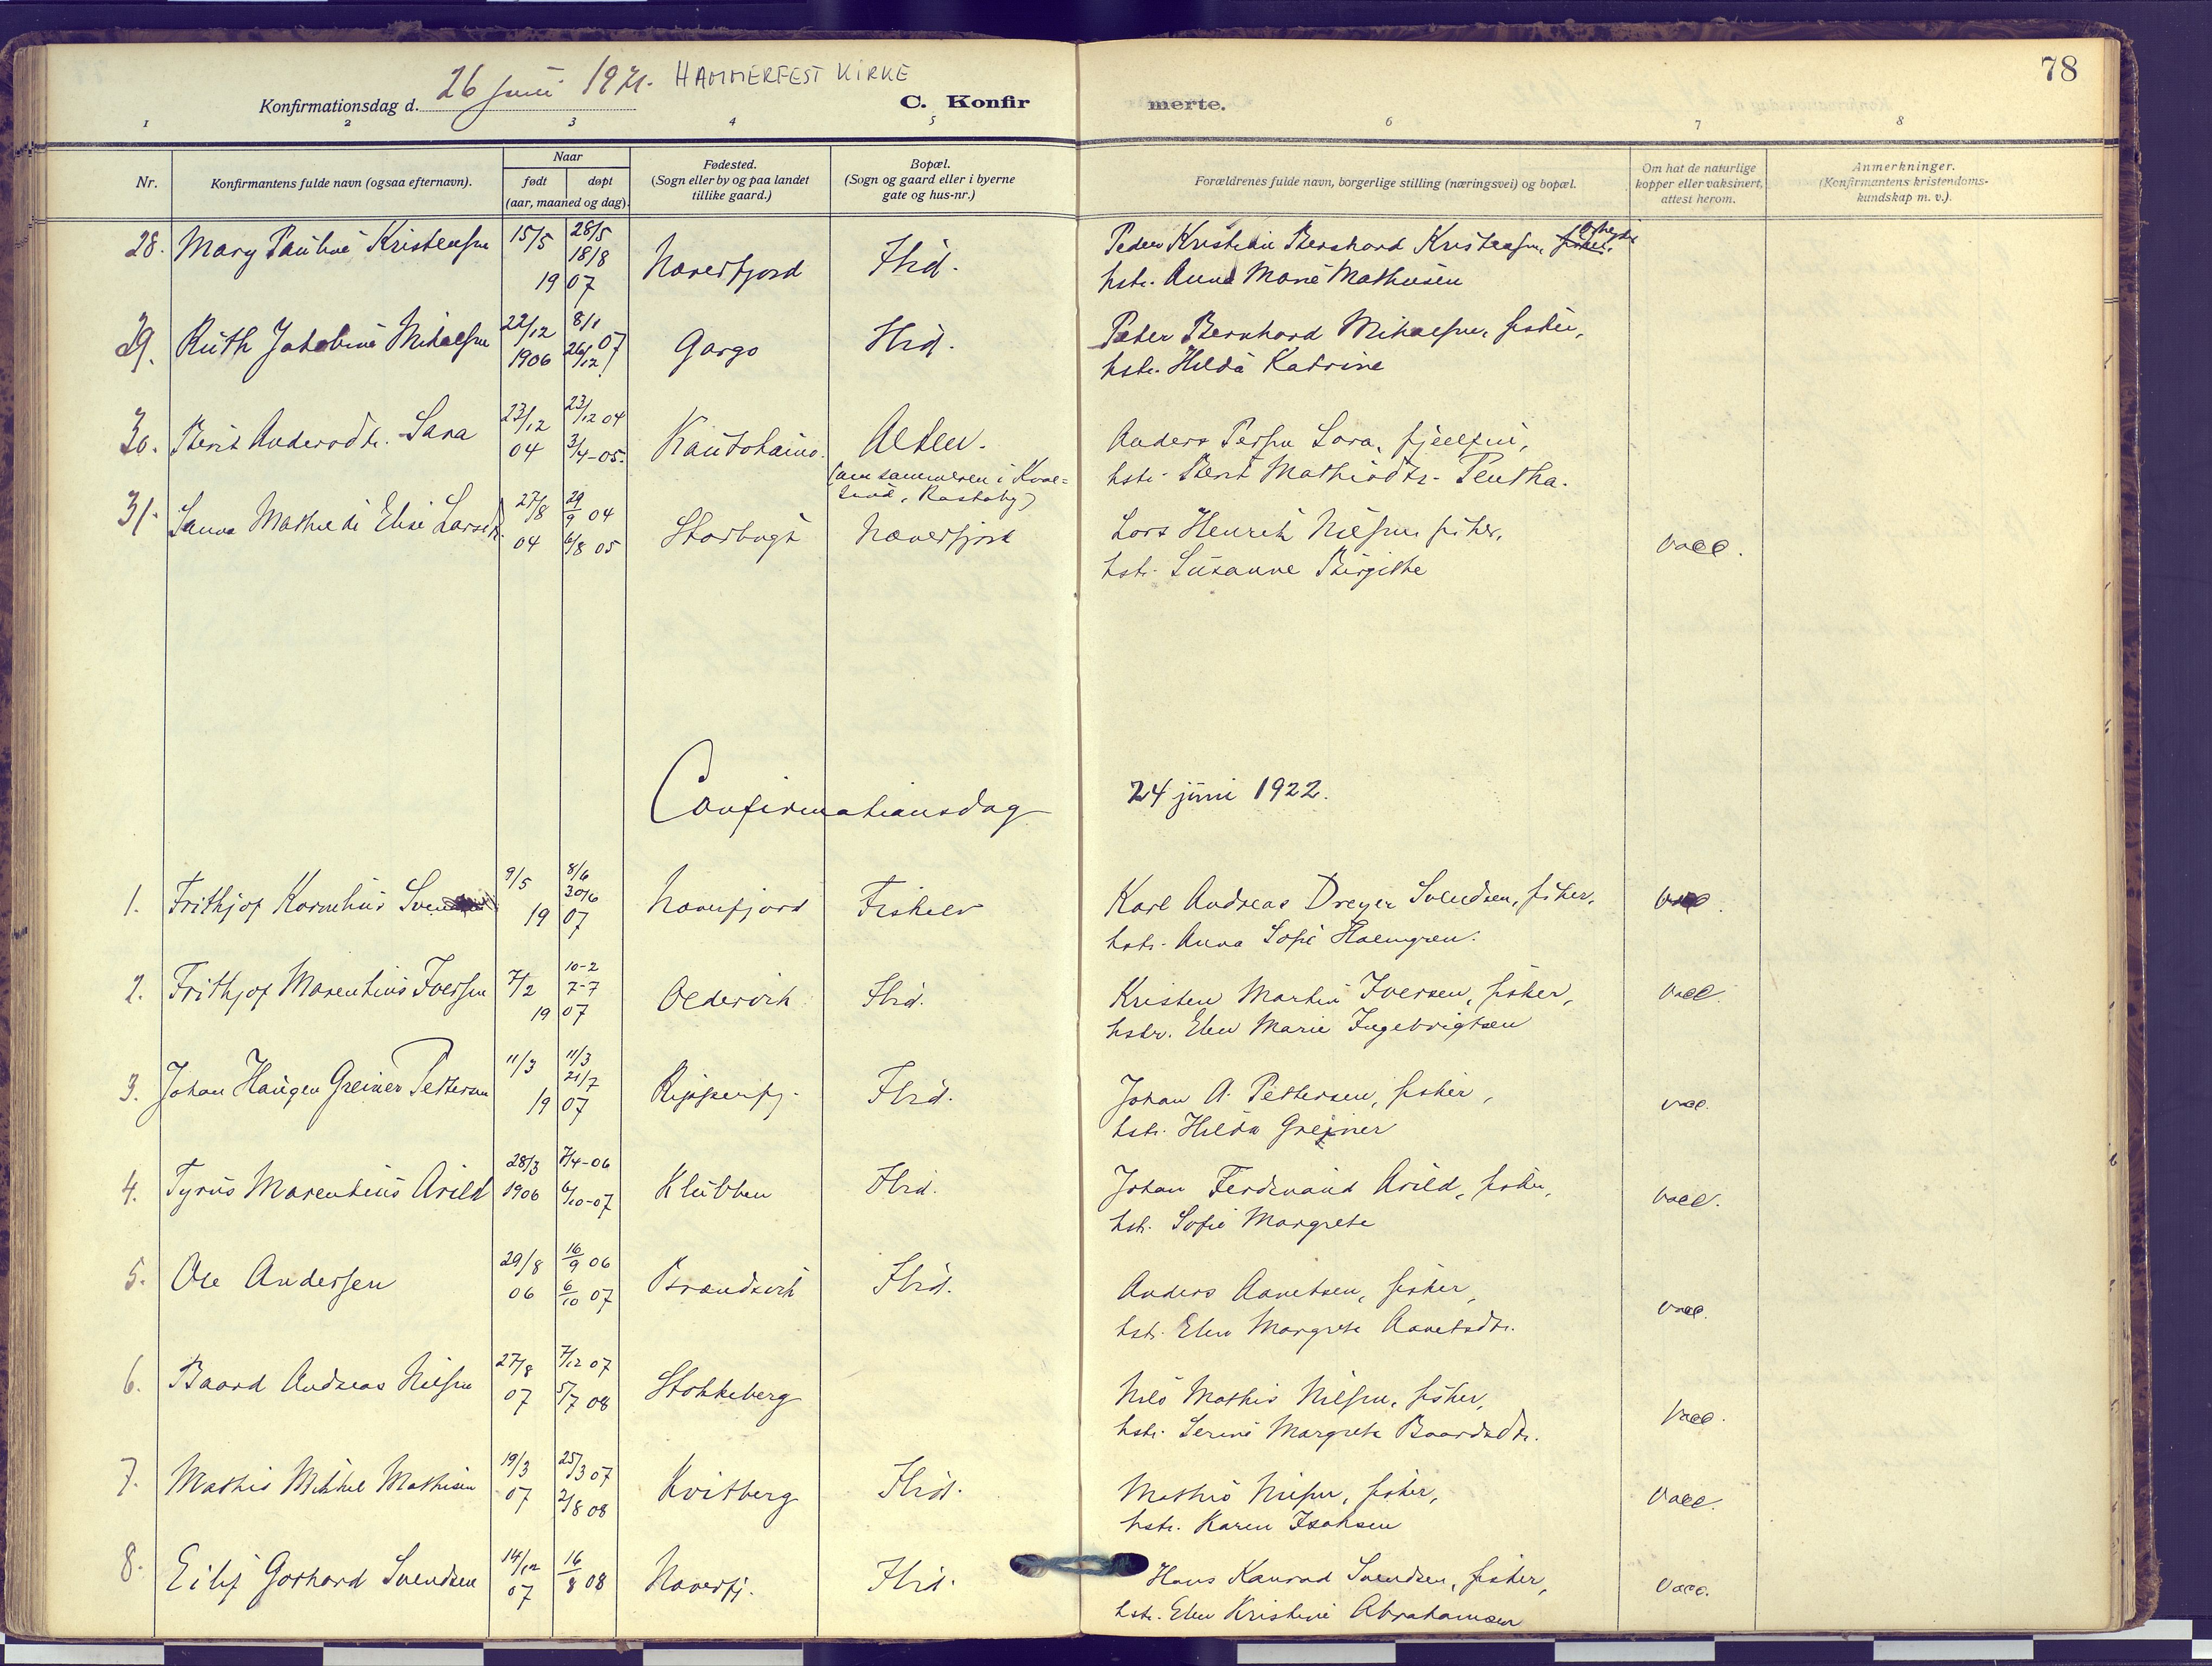 78
Konfirmationsdag d. 26 juni 1921. HAMMERFEST KIRKE
C. Konfirmerte.
1 2 3 4 5 6 7 8
Nr.
Konfirmantens fulde navn (ogsaa efternavn).
Naar
født døpt
(aar, maaned og dag).
Fødested.
(Sogn eller by og paa landet
tillike gaard.)
Bopæl.
(Sogn og gaard eller i byerne
gate og hus-nr.)
Forældrenes fulde navn, borgerlige stilling (næringsvei) og bopæl.
Om hat de naturlige
kopper eller vaksinert,
attest herom.
Anmerkninger.
(Konfirmantens kristendoms-
kundskap m. v.).
28. Mary Pauline Kristensen 15/5 28/5 18/8 1907 Naverfjord Ibid.
Peder Kristian Bernhard Kristensen, fisker,
hstr. Anna Marie Mathisen
29. Ruth Jakobine Mikalsen 22/12 1906 8/1 07 26/12 Gargo Ibid.
Peder Bernhard Mikalsen, fisker,
hstr. Hilda Katrine
30. Berit Andersdtr. Sara 23/12 04 23/12 04 3/4-05. Kautokeino. Alten.
(om sommeren i Kval-
sund, Rastaby)
Anders Persen Sara, fjellfin,
hstr. Berit Mathisdtr. Pentha.
31. Sanna Mathilde Elise Larsdtr. 27/8 04 29/9 04 6/8 05 Storbugt Naverfjord
Lars Henrik Nilsen fisker,
hstr. Susanne Birgithe
vacc.
Confirmationsdag 24 juni 1922.
1. Frithjof Kornelius Svendsen 9/5 8/6 30/6 1907 Naverfjord Fiskelv
Karl Andreas Dreyer Svendsen, fisker,
hstr. Anna Sofie Holmgren.
vacc.
2. Frithjof Marentius Iversen 7/2 10-2 7-7 1907 Oldervik Ibid.
Kristen Martin Iversen, fisker,
hstr. Elen Marie Ingebrigtsen
vacc.
3. Johan Haugen Greiner Pettersen 11/3 11/3 21/7 1907 Ripperfj. Ibid.
Johan A. Pettersen, fisker,
hstr. Hilda Greiner
vacc.
4. Tyrus Marentius Arild 28/3 1906 7/4-06 6/10-07 Klubben Ibid.
Johan Ferdinand Arild, fisker,
hstr. Sofie Margrete
vacc.
5. Ole Andersen 29/8 06 16/9 06 6/10 07 Brandsvik Ibid.
Anders Aanetsen, fisker,
hstr. Elen Margrete Aanetsdtr.
vacc.
6. Baard Andreas Nilsen 27/8 07 7/12 07 5/7 08 Stokkeberg
Nils Mathis Nilsen, fisker,
hstr. Serine Margrete Baardsdtr.
vacc.
7. Mathis Mikkel Mathisen 19/3 07 25/3 07 2/8 08 Kvitberg Ibid.
Mathis Nilsen, fisker,
hstr. Karen Isaksen
vacc.
8. Eilif Gerhard Svendsen 14/12 07 16/8 08 Naverfj. Ibid.
Hans Konrad Svendsen, fisker,
hstr. Elen Kristine Abrahamsen
vacc.